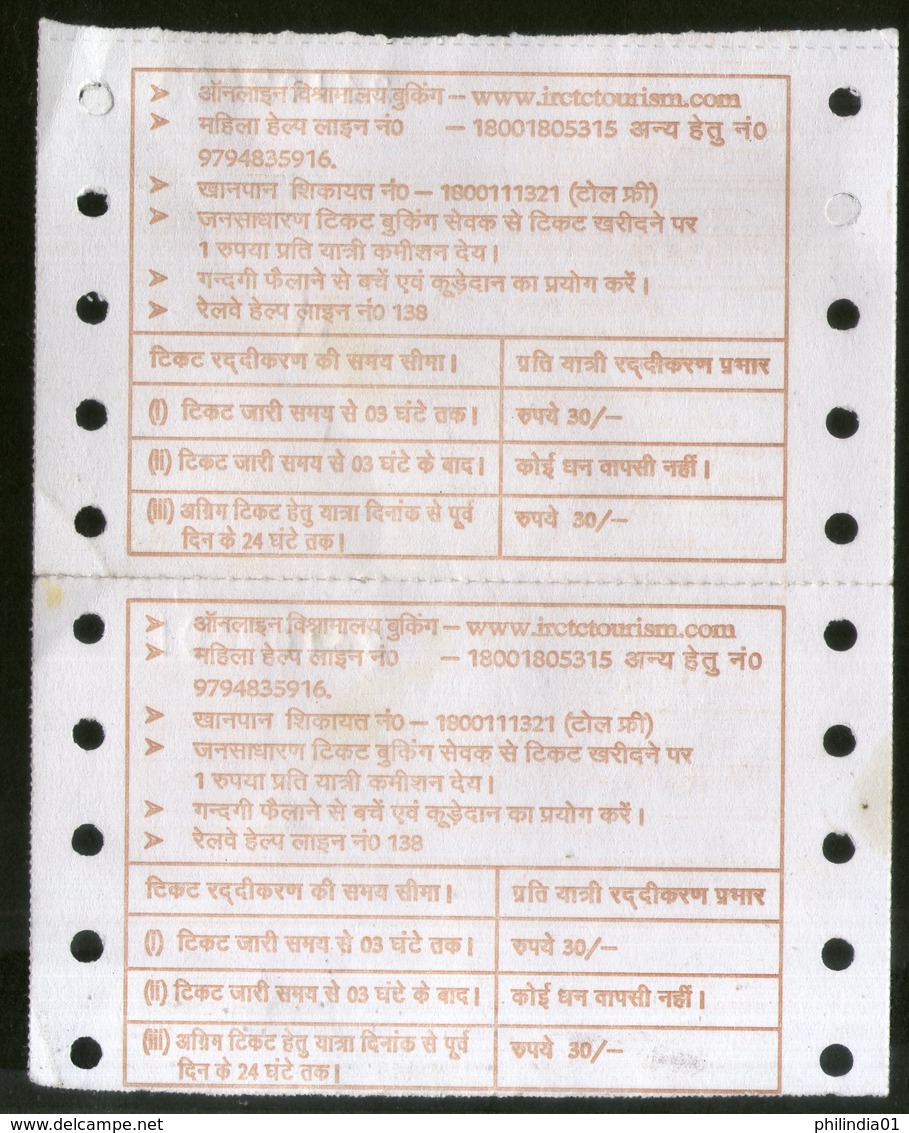 ➤ ऑनलाइन विश्रामालय बुकिंग – www.irctctourism.com
➤ महिला हेल्प लाइन नं0 – 18001805315 अन्य हेतु नं0
9794835916.
➤ खानपान शिकायत नं0 – 1800111321 (टोल फ्री)
➤ जनसाधारण टिकट बुकिंग सेवक से टिकट खरीदने पर
1 रुपया प्रति यात्री कमीशन देय।
➤ गन्दगी फैलाने से बचें एवं कूड़ेदान का प्रयोग करें।
➤ रेलवे हेल्प लाइन नं0 138
टिकट रद्दीकरण की समय सीमा। प्रति यात्री रद्दीकरण प्रभार
(i) टिकट जारी समय से 03 घंटे तक। रुपये 30/–
(ii) टिकट जारी समय से 03 घंटे के बाद। कोई धन वापसी नहीं।
(iii) अग्रिम टिकट हेतु यात्रा दिनांक से पूर्व रुपये 30/–
दिन के 24 घंटे तक।
➤ ऑनलाइन विश्रामालय बुकिंग – www.irctctourism.com
➤ महिला हेल्प लाइन नं0 – 18001805315 अन्य हेतु नं0
9794835916.
➤ खानपान शिकायत नं0 – 1800111321 (टोल फ्री)
➤ जनसाधारण टिकट बुकिंग सेवक से टिकट खरीदने पर
1 रुपया प्रति यात्री कमीशन देय।
➤ गन्दगी फैलाने से बचें एवं कूड़ेदान का प्रयोग करें।
➤ रेलवे हेल्प लाइन नं0 138
टिकट रद्दीकरण की समय सीमा। प्रति यात्री रद्दीकरण प्रभार
(i) टिकट जारी समय से 03 घंटे तक। रुपये 30/–
(ii) टिकट जारी समय से 03 घंटे के बाद। कोई धन वापसी नहीं।
(iii) अग्रिम टिकट हेतु यात्रा दिनांक से पूर्व रुपये 30/–
दिन के 24 घंटे तक।
philindia01